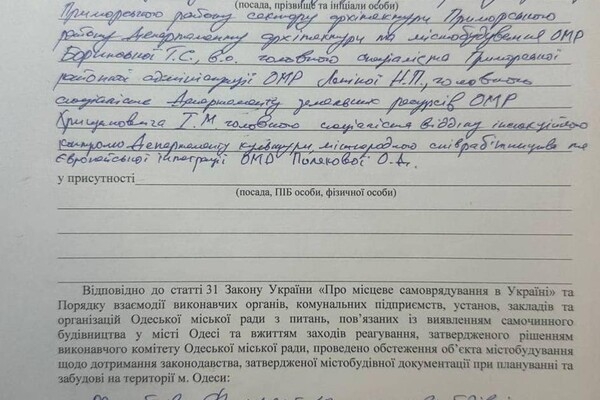 (посада, прізвище та ініціали особи)
Приморського району сектору архітектури Приморського
району Департаменту архітектури та містобудування ОМР
Т.С., в.о. головного спеціаліста Приморської
районної адміністрації ОМР Н.П., головного
спеціаліста Департаменту земельних ресурсів ОМР
І.М головного спеціаліста відділу
контролю Департаменту культури, міжнародного співробітництва та
Європейської інтеграції ОМР Полякової О.А.
у присутності
(посада, ПІБ особи, фізичної особи)
Відповідно до статті 31 Закону України «Про місцеве самоврядування в Україні» та
Порядку взаємодії виконавчих органів, комунальних підприємств, установ, закладів та
організацій Одеської міської ради з питань, пов'язаних із виявленням самочинного
будівництва у місті Одесі та вжиттям заходів реагування, затвердженого рішенням
виконавчого комітету Одеської міської ради, проведено обстеження об'єкта містобудування
щодо дотримання законодавства, затвердженої містобудівної документації при плануванні та
забудові на території м. Одеси: